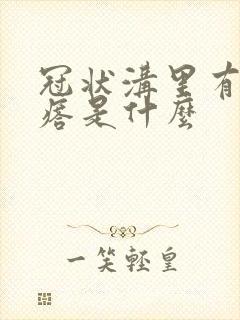 冠状溝里有
痞是什麼
一笑輕皇